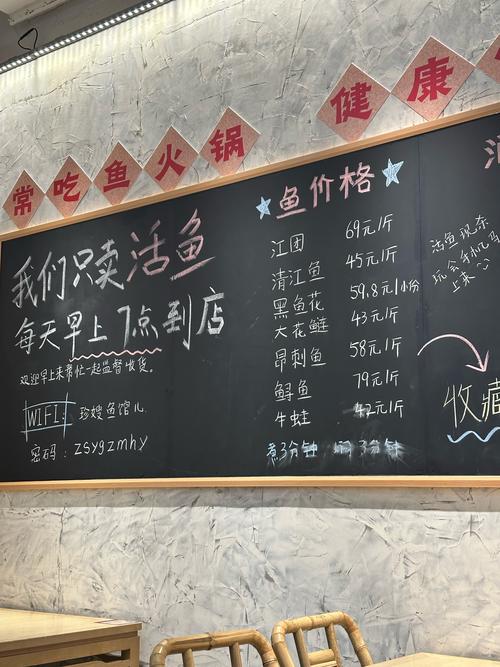 常吃鱼火锅
健康
我们只卖活鱼
每天早上7点到店
欢迎早上来帮忙一起监督收货。
WIFI: 珍嫂鱼馆儿
密码: zsygzmhy
鱼价格
江团 69元/斤
清江鱼 45元/斤
黑鱼花 59.8元/小份
大花鲢 43元/斤
昂刺鱼 58元/斤
鲟鱼 79元/斤
牛蛙 42元/斤
煮3分钟 焖3分钟
活鱼现杀
上来
收藏